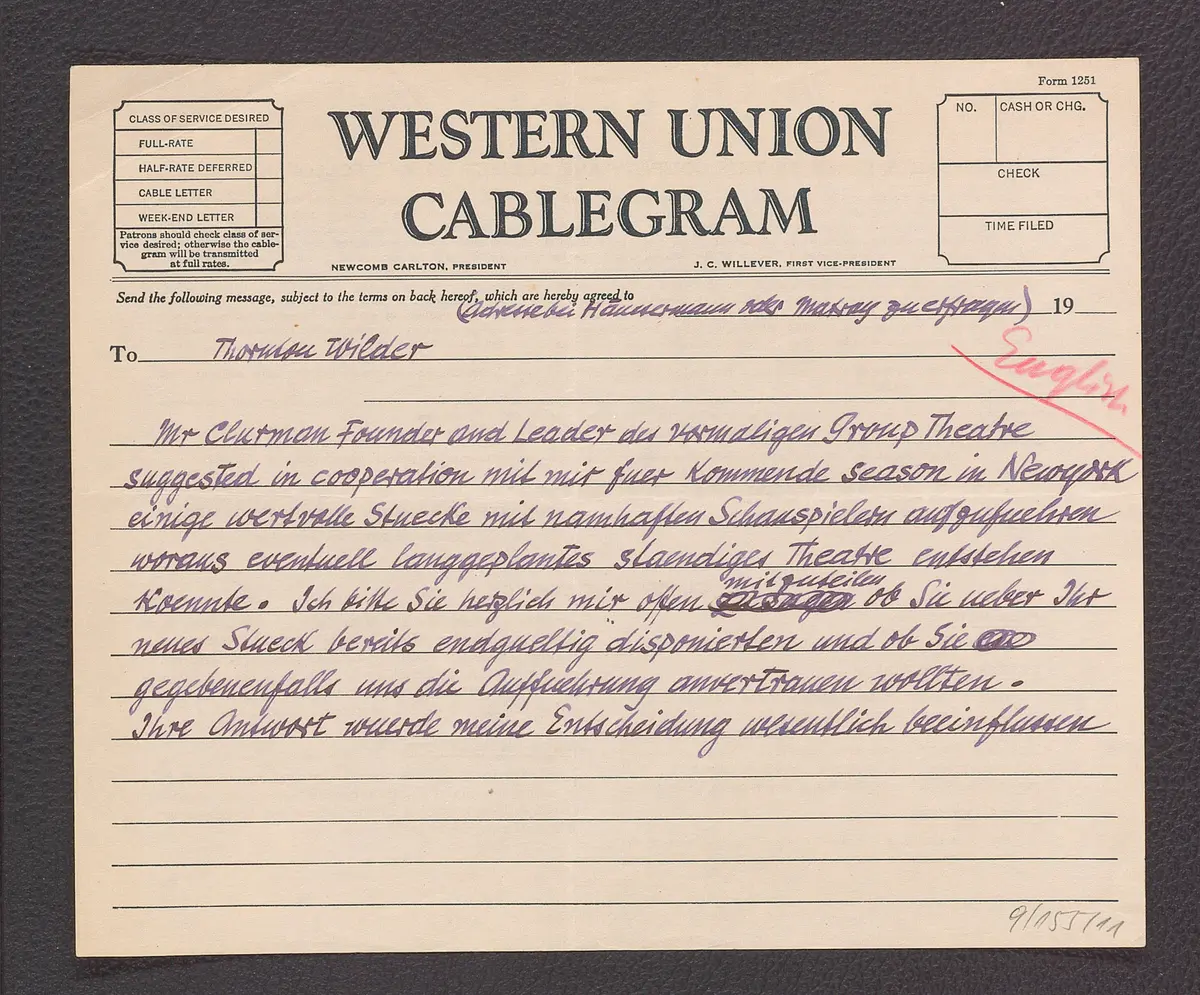 Form 1251
CLASS OF SERVICE DESIRED
FULL-RATE
HALF-RATE DEFERRED
CABLE LETTER
WEEK-END LETTER
Patrons should check class of ser-
vice desired; otherwise the cable-
gram will be transmitted
at full rates.
WESTERN UNION
CABLEGRAM
NEWCOMB CARLTON, PRESIDENT
J. C. WILLEVER, FIRST VICE-PRESIDENT
NO.
CASH OR CHG.
CHECK
TIME FILED
Send the following message, subject to the terms on back hereof, which are hereby agreed to
(Adresse bei Haussermann oder Matray zu erfragen) 19
To Thornton Wilder
English
Mr Clurman Founder and Leader des vormaligen Group Theatre
suggested in cooperation mit mir fuer Kommende season in Newyork
einige wertvolle Stuecke mit namhaften Schauspielern aufzufuehren
woraus eventuell langgeplantes staendiges Theatre entstehen
mitzuteilen
Koennte. Ich bitte Sie herzlich mir offen zu sagen ob Sie ueber Ihr
neues Stueck bereits endgueltig disponierten und ob Sie
gegebenenfalls uns die Auffuehrung anvertrauen wollten.
Ihre Antwort wuerde meine Entscheidung wesentlich beeinflussen
9/155/11